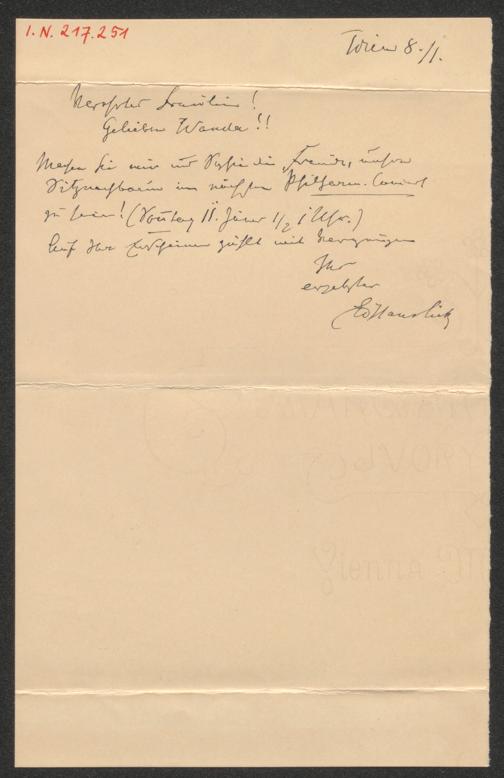 I. N. 217.251
Wien 8./1.
Verehrtes Fräulein!
Geliebte Wanda!!
Machen Sie mir und Sophie die Freude, unsere
Sitznachbarin im nächsten Philharm. Concert
zu sein! (Sonntag 11. Jäner 1/2 1 Uhr.)
Auf Ihr Erscheinen zählt mit Vergnügen
Ihr
ergebster
EdHanslick
Vienna M